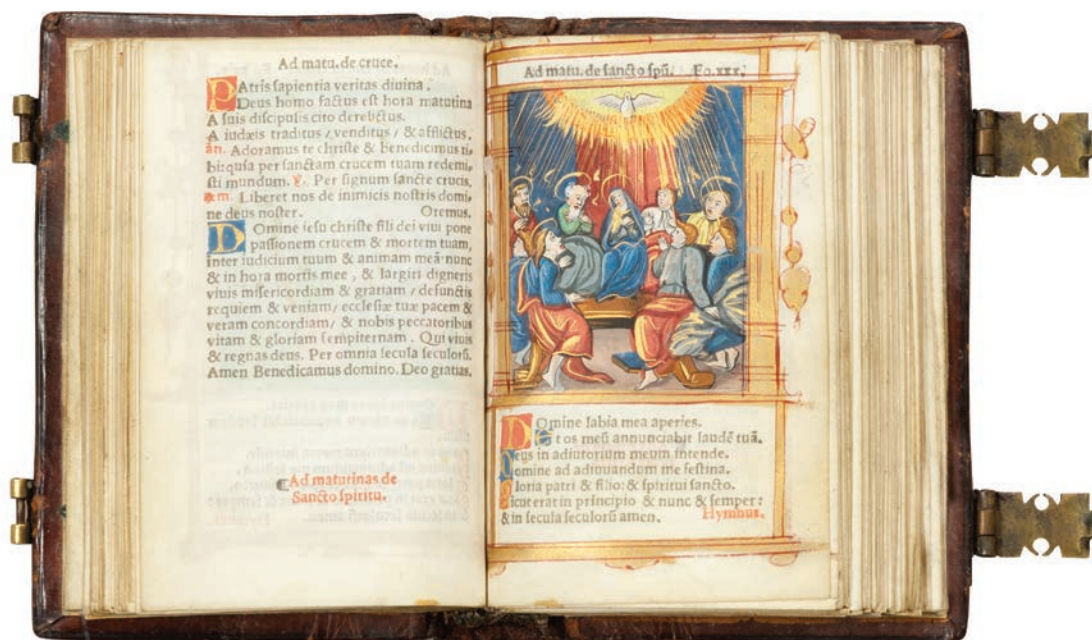 Ad matu. de cruce.
PAtris sapientia veritas diuina.
Deus homo factus est hora matutina
A suis discipulis cito derelictus.
A iudæis traditus, venditus, & afflictus.
añ. Adoramus te christe & benedicimus ti,
bi: quia per sanctam crucem tuam redemi,
sti mundum. ℣. Per signum sancte crucis.
Liberet nos de inimicis nostris domi,
ne deus noster. Oremus.
DOmine iesu christe fili dei viui pone
passionem crucem & mortem tuam,
inter iudicium tuum & animam meã: nunc
& in hora mortis mee, & largiri digneris
viuis misericordiam & gratiam / defunctis
requiem & veniam / ecclesiæ tuæ pacem &
veram concordiam / & nobis peccatoribus
vitam & gloriam sempiternam. Qui viuis
& regnas deus. Per omnia secula seculorũ.
Amen Benedicamus domino. Deo gratias.
Ad maturinas de
Sancto spiritu.
Ad matu. de sancto spũ. Fo. xxx.
DOmine labia mea aperies.
Et os meũ annunciabit laudẽ tuã.
Deus in adiutorium meum intende.
Domine ad adiuuandum me festina.
Gloria patri & filio: & spiritui sancto.
Sicut erat in principio & nunc & semper:
& in secula seculorũ amen. Hymnus.